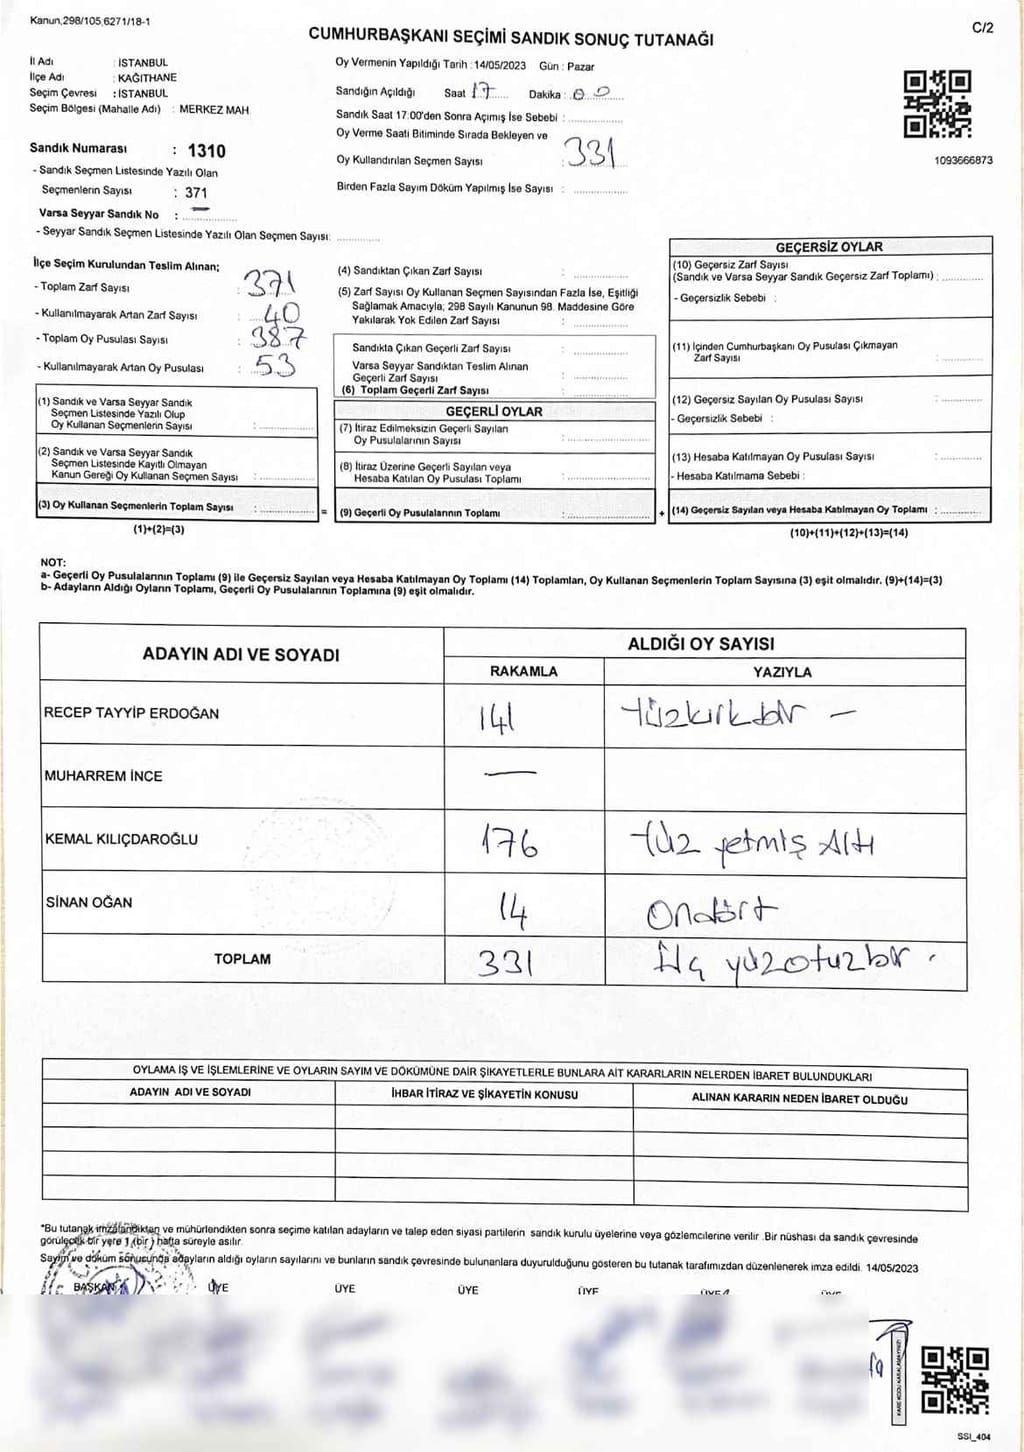 Kanun,298/105,6271/18-1
C/2
CUMHURBAŞKANI SEÇİMİ SANDIK SONUÇ TUTANAĞI
İl Adı : İSTANBUL
İlçe Adı : KAĞITHANE
Seçim Çevresi : İSTANBUL
Seçim Bölgesi (Mahalle Adı) : MERKEZ MAH
Sandık Numarası : 1310
- Sandık Seçmen Listesinde Yazılı Olan
Seçmenlerin Sayısı : 371
Varsa Seyyar Sandık No : —
- Seyyar Sandık Seçmen Listesinde Yazılı Olan Seçmen Sayısı: ............
Oy Vermenin Yapıldığı Tarih : 14/05/2023 Gün : Pazar
Sandığın Açıldığı Saat 17 Dakika : 00
Sandık Saat 17:00'den Sonra Açımış İse Sebebi : ............
Oy Verme Saati Bitiminde Sırada Bekleyen ve
Oy Kullandırılan Seçmen Sayısı : 331
Birden Fazla Sayım Döküm Yapılmış İse Sayısı : ............
1093666873
İlçe Seçim Kurulundan Teslim Alınan;
- Toplam Zarf Sayısı : 371
- Kullanılmayarak Artan Zarf Sayısı : 40
- Toplam Oy Pusulası Sayısı : 387
- Kullanılmayarak Artan Oy Pusulası : 53
(1) Sandık ve Varsa Seyyar Sandık
Seçmen Listesinde Yazılı Olup
Oy Kullanan Seçmenlerin Sayısı : ............
(2) Sandık ve Varsa Seyyar Sandık
Seçmen Listesinde Kayıtlı Olmayan
Kanun Gereği Oy Kullanan Seçmen Sayısı : ............
(3) Oy Kullanan Seçmenlerin Toplam Sayısı : ............ =
(1)+(2)=(3)
(4) Sandıktan Çıkan Zarf Sayısı : ............
(5) Zarf Sayısı Oy Kullanan Seçmen Sayısından Fazla İse, Eşitliği
Sağlamak Amacıyla; 298 Sayılı Kanunun 98. Maddesine Göre
Yakılarak Yok Edilen Zarf Sayısı : ............
Sandıkta Çıkan Geçerli Zarf Sayısı : ............
Varsa Seyyar Sandıktan Teslim Alınan
Geçerli Zarf Sayısı : ............
(6) Toplam Geçerli Zarf Sayısı : ............
GEÇERLİ OYLAR
(7) İtiraz Edilmeksizin Geçerli Sayılan
Oy Pusulalarının Sayısı : ............
(8) İtiraz Üzerine Geçerli Sayılan veya
Hesaba Katılan Oy Pusulası Toplamı : ............
(9) Geçerli Oy Pusulalarının Toplamı : ............ +
GEÇERSİZ OYLAR
(10) Geçersiz Zarf Sayısı
(Sandık ve Varsa Seyyar Sandık Geçersiz Zarf Toplamı) : ............
- Geçersizlik Sebebi :
(11) İçinden Cumhurbaşkanı Oy Pusulası Çıkmayan
Zarf Sayısı : ............
(12) Geçersiz Sayılan Oy Pusulası Sayısı : ............
- Geçersizlik Sebebi :
(13) Hesaba Katılmayan Oy Pusulası Sayısı : ............
- Hesaba Katılmama Sebebi :
(14) Geçersiz Sayılan veya Hesaba Katılmayan Oy Toplamı : ............
(10)+(11)+(12)+(13)=(14)
NOT:
a- Geçerli Oy Pusulalarının Toplamı (9) ile Geçersiz Sayılan veya Hesaba Katılmayan Oy Toplamı (14) Toplamları, Oy Kullanan Seçmenlerin Toplam Sayısına (3) eşit olmalıdır. (9)+(14)=(3)
b- Adayların Aldığı Oyların Toplamı, Geçerli Oy Pusulalarının Toplamına (9) eşit olmalıdır.
ADAYIN ADI VE SOYADI ALDIĞI OY SAYISI
RAKAMLA YAZIYLA
RECEP TAYYİP ERDOĞAN 141 Yüzkırkbir —
MUHARREM İNCE —
KEMAL KILIÇDAROĞLU 176 Yüz yetmiş Altı
SİNAN OĞAN 14 Ondört
TOPLAM 331 Üç yüzotuzbir .
OYLAMA İŞ VE İŞLEMLERİNE VE OYLARIN SAYIM VE DÖKÜMÜNE DAİR ŞİKAYETLERLE BUNLARA AİT KARARLARIN NELERDEN İBARET BULUNDUKLARI
ADAYIN ADI VE SOYADI İHBAR İTİRAZ VE ŞİKAYETİN KONUSU ALINAN KARARIN NEDEN İBARET OLDUĞU
*Bu tutanak imzalandıktan ve mühürlendikten sonra seçime katılan adayların ve talep eden siyasi partilerin sandık kurulu üyelerine veya gözlemcilerine verilir .Bir nüshası da sandık çevresinde
görülecek bir yere 1 (bir) hafta süreyle asılır.
Sayım ve döküm sonucunda adayların aldığı oyların sayılarını ve bunların sandık çevresinde bulunanlara duyurulduğunu gösteren bu tutanak tarafımızdan düzenlenerek imza edildi. 14/05/2023
BAŞKAN ÜYE ÜYE ÜYE ÜYE ÜYE
SSİ_404